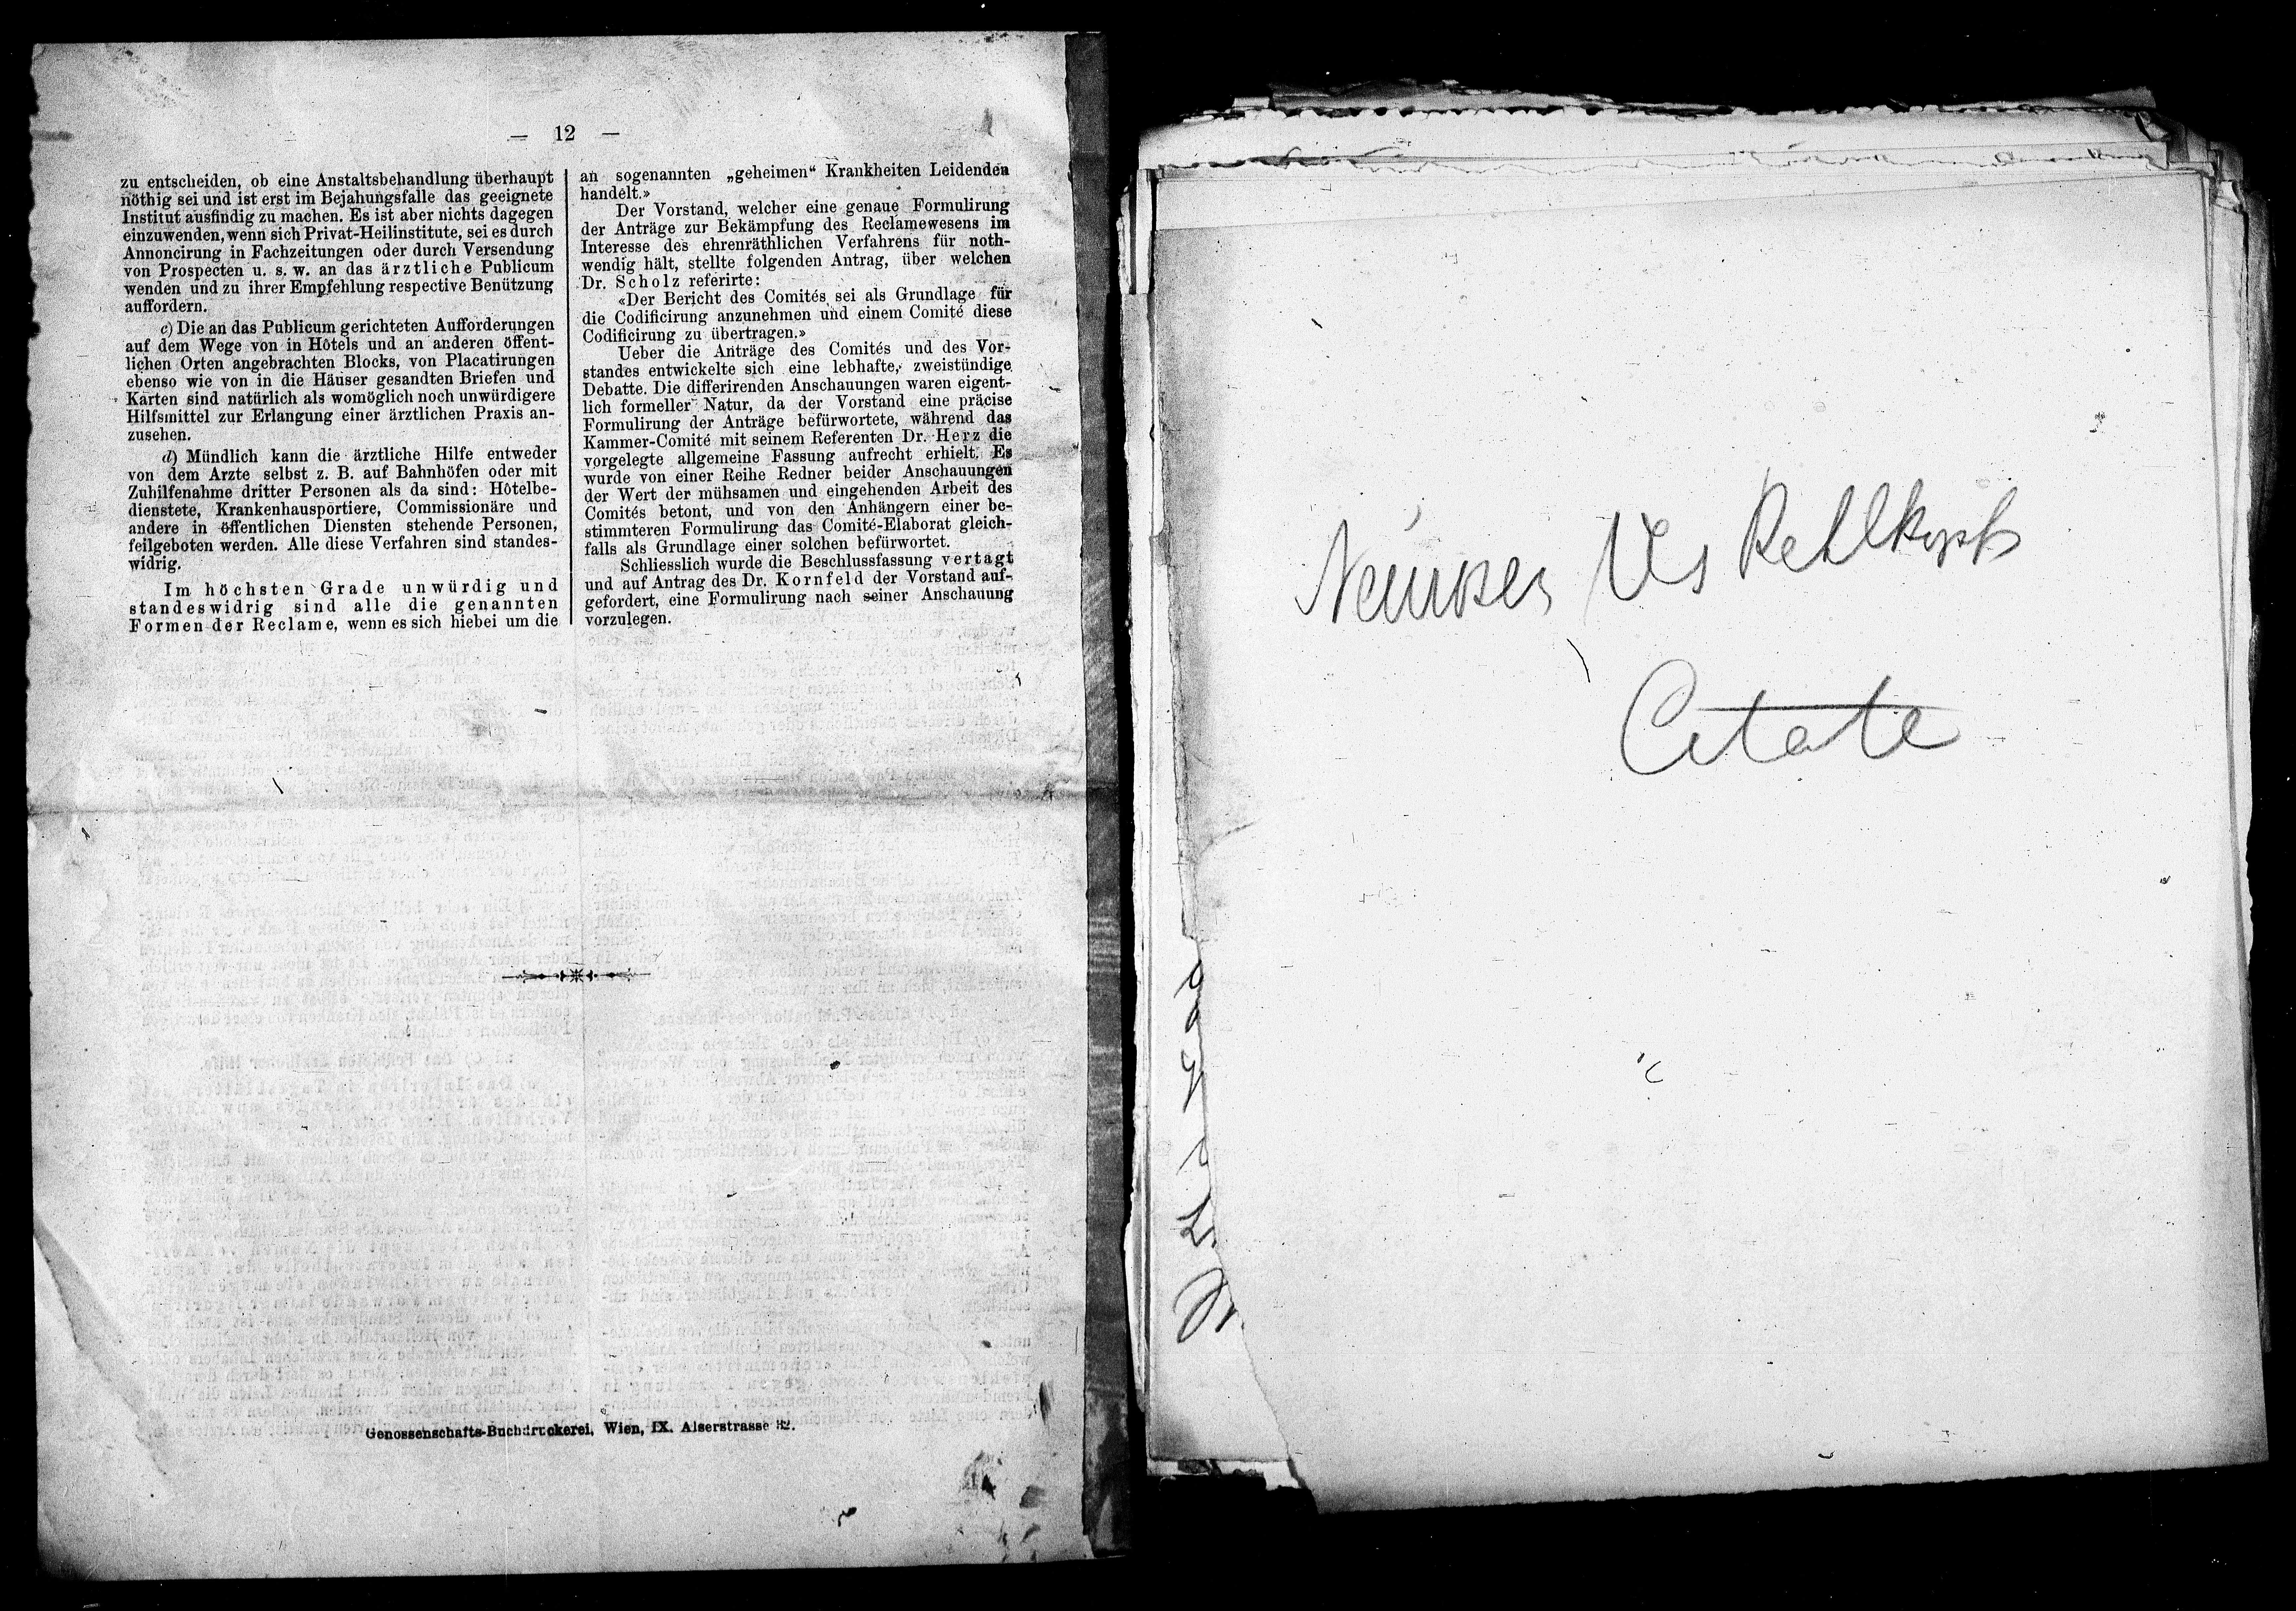 — 12 —
zu entscheiden, ob eine Anstaltsbehandlung überhaupt
nöthig sei und ist erst im Bejahungsfalle das geeignete
Institut ausfindig zu machen. Es ist aber nichts dagegen
einzuwenden, wenn sich Privat-Heilinstitute, sei es durch
Annoncirung in Fachzeitungen oder durch Versendung
von Prospecten u. s. w. an das ärztliche Publicum
wenden und zu ihrer Empfehlung respective Benützung
auffordern.
c) Die an das Publicum gerichteten Aufforderungen
auf dem Wege von in Hôtels und an anderen öffent-
lichen Orten angebrachten Blocks, von Placatirungen
ebenso wie von in die Häuser gesandten Briefen und
Karten sind natürlich als womöglich noch unwürdigere
Hilfsmittel zur Erlangung einer ärztlichen Praxis an-
zusehen.
d) Mündlich kann die ärztliche Hilfe entweder
von dem Arzte selbst z. B. auf Bahnhöfen oder mit
Zuhilfenahme dritter Personen als da sind: Hôtelbe-
dienstete, Krankenhausportiere, Commissionäre und
andere in öffentlichen Diensten stehende Personen,
feilgeboten werden. Alle diese Verfahren sind standes-
widrig.
Im höchsten Grade unwürdig und
standeswidrig sind alle die genannten
Formen der Reclame, wenn es sich hiebei um die
an sogenannten „geheimen“ Krankheiten Leidenden
handelt.»
Der Vorstand, welcher eine genaue Formulirung
der Anträge zur Bekämpfung des Reclamewesens im
Interesse des ehrenräthlichen Verfahrens für noth-
wendig hält, stellte folgenden Antrag, über welchen
Dr. Scholz referirte:
«Der Bericht des Comités sei als Grundlage für
die Codificirung anzunehmen und einem Comité diese
Codificirung zu übertragen.»
Ueber die Anträge des Comités und des Vor-
standes entwickelte sich eine lebhafte, zweistündige
Debatte. Die differirenden Anschauungen waren eigent-
lich formeller Natur, da der Vorstand eine präcise
Formulirung der Anträge befürwortete, während das
Kammer-Comité mit seinem Referenten Dr. Herz die
vorgelegte allgemeine Fassung aufrecht erhielt. Es
wurde von einer Reihe Redner beider Anschauungen
der Wert der mühsamen und eingehenden Arbeit des
Comités betont, und von den Anhängern einer be-
stimmteren Formulirung das Comité-Elaborat gleich-
falls als Grundlage einer solchen befürwortet.
Schliesslich wurde die Beschlussfassung vertagt
und auf Antrag des Dr. Kornfeld der Vorstand auf-
gefordert, eine Formulirung nach seiner Anschauung
vorzulegen.
Genossenschafts-Buchdruckerei, Wien, IX. Alserstrasse 32.
Neurosen des Kehlkopfs
Citate